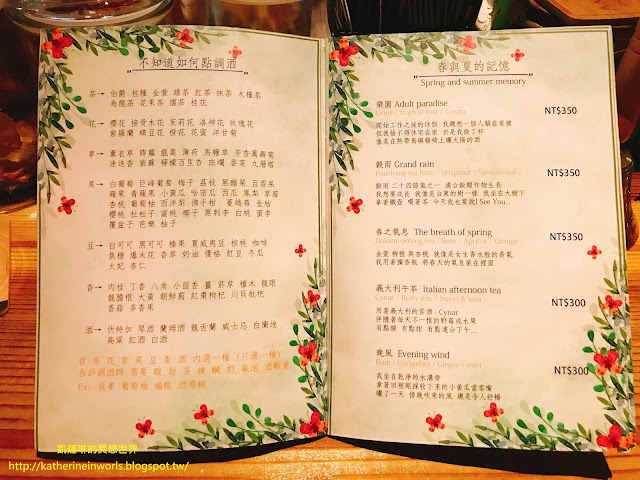 "不知道如何點調酒"
茶→ 伯爵 包種 金萱 綠茶 紅茶 抹茶 木槿茶
烏龍茶 花果茶 熟茶 桂花
花→ 櫻花 接骨木花 茉莉花 洛神花 玫瑰花
紫羅蘭 蝶豆花 橙花 花蜜 洋甘菊
草→ 薰衣草 蒔蘿 龍蒿 薄荷 馬鞭草 芳香萬壽菊
迷迭香 紫蘇 檸檬百里香 斑斕 香茅 九層塔
果→ 白葡萄 巨峰葡萄 梅子 荔枝 黑醋栗 百香果
蘋果 青蘋果 小黃瓜 哈密瓜 西瓜 鳳梨 草莓
杏桃 葡萄柚 西洋梨 佛手柑 蔓越莓 金桔
櫻桃 杜松子 蜜桃 椰子 黑刺李 白桃 蜜李
覆盆子 芭樂 柚子
豆→ 白可可 黑可可 榛果 夏威夷豆 核桃 咖啡
焦糖 爆米花 香草 奶油 優格 紅豆 冬瓜
太妃 杏仁
香→ 肉桂 丁香 八角 小茴香 薑 蒔草 檀木 龍眼
龍膽根 大黃 朝鮮薊 紅棗枸杞 川貝枇杷
香菇 多香果
酒→ 伏特加 琴酒 蘭姆酒 龍舌蘭 威士忌 白蘭地
高粱 紅酒 白酒
從 茶 花 草 果 豆 香 酒 內選一種 (只選一種)
告訴調酒師 需要 酸 甜 苦 辣 鹹 奶 氣泡 酒輕重
Ex: 我要 葡萄柚 偏酸 酒感輕
"春與夏的記憶"
Spring and summer memory
樂園 Adult paradise NT$350
Wine / tropical fruit / Cream
開始工作之後的休假 我總想一個人躺在家裡
但我捨不得休宅在家 於是我做了杯
像是在熱帶島嶼躺椅上曬太陽的酒
穀雨 Grand rain NT$350
Pauchong tea Rum / bergamot / Sandalwood /
穀雨 二十四節氣之一 適合穀類作物生長
我想要成長 就像是台東的樹一樣 我坐在大樹下
拿著鐵壺 喝著茶 今天我也要說I See You...
春之氣息 The breath of spring NT$350
Jinxuan oolong tea / Rum / Apricot / Orange
金萱 柳橙 與杏桃 就像是女生香水般的香氣
我用著擴香瓶 將春天的氣息裝在裡面
義大利午茶 Italian afternoon tea NT$300
Cynar / Berry mix / Sweet & sour
用著義大利的苦酒-Cynar
伴隨著每天不一樣的野莓或水果
有點酸 有點甜 有點適合下午...
晚風 Evening wind NT$300
Rum / Cucumber / Ginger / mint
我坐在乾淨的水溝旁
拿著田裡剛採收下來的小黃瓜當零嘴
曬了一天 傍晚吹來的風 總是令人舒暢
凱薩琳的異想世界
http://katherineinworls.blogspot.tw/